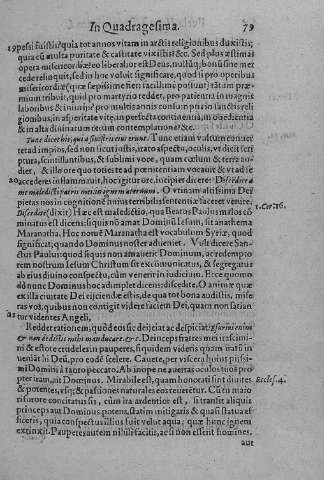 In Quadragesima. 79
19 pesti fuisti? quia tot annos vitam in arctis religionibus duxistis;
quia cũ multa puritate & castitate vixisti &c. Sed plus æstimat
opera misericordiæ eo liberalior est Deus, nullũq; bonũ sine mer
cede reliquit, sed in hoc voluit significare, quod si pro operibus
misericordiæ (quæ sæpissime fieri facillime possunt) tãtam præ
mium tribuit, quid pro martyrio reddet, pro patientia in magnis
laboribus & iniurijs pro multis annis consumptis in sanctis reli
gionibus, in asperitate vitę, in perfecta continentia, in obedientia
& in alta diuinarum rerum contemplatione? &c.
Tunc dicet his, qui à sinistris eius erunt. Tunc etiam vultum conuer
tet ad impios, sed non sicut iustis, irato aspectu, oculis, vt dicit scri
ptura, scintillantibus, & sublimi voce, quam cœlum & terra au-
diet, & illo ore quo toties te ad pœnitentiam vocauit & vt ad se
20 accederes inflammauit, hoc igitur ore incipiet dicere: Discedite à
me maledicti patris mei in ignem æternum. O vtinam altissimi Dei
pietas nos in cognitione huius terribilis sententiæ faceret venire,
Discedite (dixit) Hæc est maledictio, qua Beatus Paulus malos cõ
1. Cor. 16.
minatus est dicens: si quis nõ amat Dominũ Iesum, sit anathema
Maranatha. Hoc nomẽ Maranatha est vocabulum Syriæ, quod
significat; quando Dominus noster adueniet. Vult dicere San-
ctus Paulus: quod si quis non amauerit Dominum, ac redempto
rem nostrum Iesum Christum sit excommunicatus, & segregatus
ab eius diuino conspectu, cùm venerit in iudicium. Ecce quomo
dò nunc Dominus hoc adimplet dicens: discedite. O animæ quæ
ex illa ciuitate Dei eijciendæ estis, de qua tot bona audistis, mise
ras vos, quibus non contigit videre faciem Dei, quam non satian
21 tur videntes Angeli,
Reddet rationem, quod eos sic deijciat ac despiciat; esuriui enim
& non dedistis mihi manducare & c. Principes fratres mei transcimi-
ni & estote crudeles in pauperes, si quidem videris quam irati in
veniãt hi Deũ, pro eo dẽ scelere. Cauete, per viscera huius pijssi-
mi Domini à tanto peccato. Ab inope ne auertas oculos tuos pro
pter iram, ait Dominus. Mirabile est, quam honoratì sint diuites
Eccles. 4.
& potentes, esti; & passiones naturales eos reuerẽtur. Cũ tu maio
ri furore concitatus sis, cùm ira ardentior est, si transit aliquis
princeps aut Dominus potens, statim mitigaris & quasi statua ef-
ficeris, quia conspectus illius fuit velut aqua; quæ hunc ignem
extinxit. Pauperes autem nihil facitis, ac si non essent homines,
aut